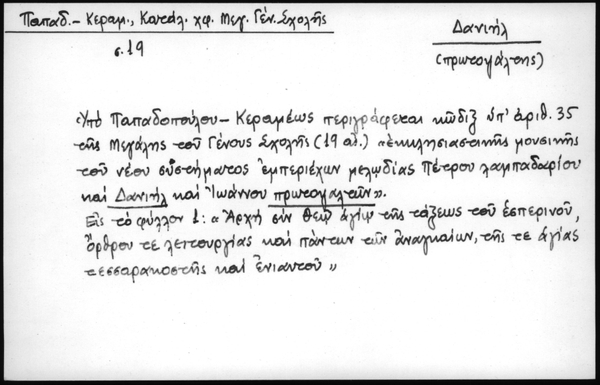 Παπαδ.- Κεραμ., Κατάλ. χφ. Μεγ. Γέν. Σχολῆς
σ. 19
Δανιήλ
(πρωτοψάλτης)
Ὑπό Παπαδοπούλου-Κεραμέως περιγράφεται κῶδιξ ὑπ' ἀριθ. 35
τῆς Μεγάλης τοῦ Γένους Σχολῆς (19 αἰ.) «ἐκκλησιαστικῆς μουσικῆς
τοῦ νέου συστήματος ἐμπεριέχων μελῳδίας Πέτρου λαμπαδαρίου
καί Δανιήλ καί Ἰωάννου πρωτοψαλτῶν».
Εἰς τό φύλλον 1: «Ἀρχή σύν Θεῷ ἁγίῳ τῆς τάξεως τοῦ ἑσπερινοῦ,
ὄρθρου τε λειτουργίας καί πάντων τῶν ἀναγκαίων, τῆς τε ἁγίας
τεσσαρακοστῆς καί ἐνιαυτοῦ»